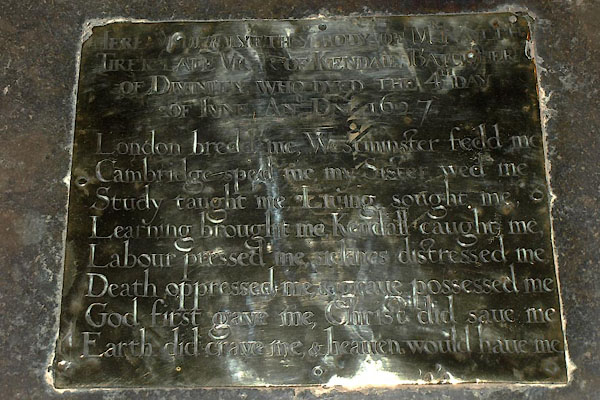 HERE VNDER LYETH Yᴱ BODY OF Mᴿ RALPH
TIRER LATE VICAR OF KENDALL BATCHLER
OF DIVINITY, WHO DYED THE 14 DAY
OF IVNE, AN: DNI: 1627
London bredd me, Westminster fedd me
Cambridge sped me, my Sister wed me,
Study taught me, Liuing sought me,
Learning brought me, Kendall caught me,
Labour pressed me, sicknes distressed me,
Death oppressed me, & graue possessed me,
God first gaue me, Christ did saue me
Earth did craue me, & heauen would haue me